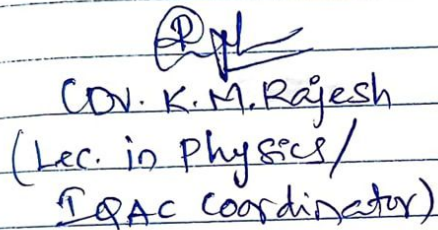 K.M. Rajesh
(Lec. in Physics/
IQAC Coordinator)